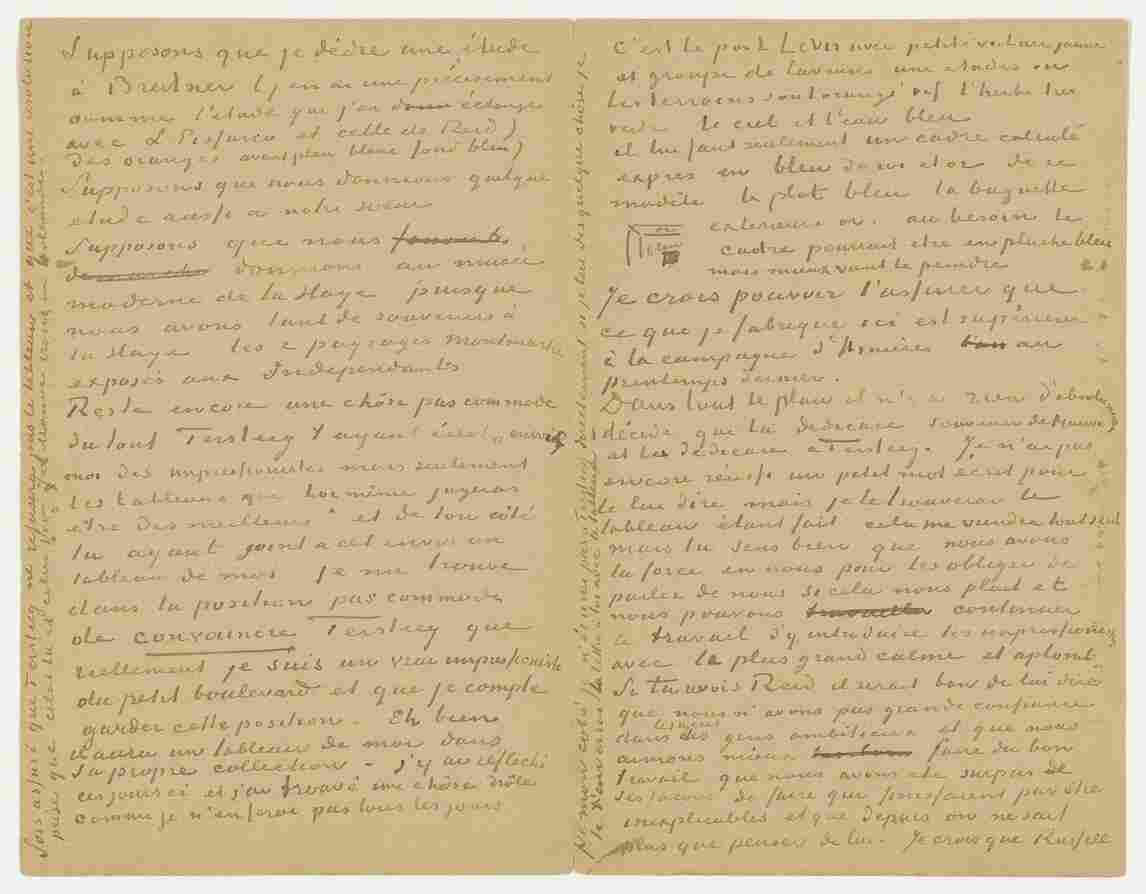 Supposons que je dédie une étude
à Breitner (j'en ai une précisément
comme l'étude que j'ai donn échangée
avec L Pissarro et celle de Reid)
des oranges avant plan blanc fond bleu)
Supposons que nous donnions quelque
étude aussi à notre sœur
Supposons que nous
donnions au musée
moderne de la Haye puisque
nous avons tant de souvenirs à
la Haye les 2 paysages Montmartre
exposés aux Indépendants
Reste encore une chôse pas commode
du tout Tersteeg t'ayant écrit „envoie
moi des impressionistes mais seulement
les tableaux que toi même jugeras
être des meilleurs" et de ton côté
tu ayant joint à cet envoi un
tableau de moi je me trouve
dans la position pas commode
de convaincre Tersteeg que
réellement je suis un vrai impressioniste
du petit boulevard et que je compte
garder cette position. Eh bien
il aura un tableau de moi dans
sa propre collection – j'y ai réfléchi
ces jours ci et j'ai trouvé une chôse drôle
comme je n'en ferai pas tous les jours
c'est le pont Levis avec petite voiture jaune
et groupe de laveuses une étude où
les terrains sont orangé vif l'herbe très
verte le ciel et l'eau bleu
il lui faut seulement un cadre calculé
exprès en bleu de roi et or de ce
modèle le plat bleu la baguette
exterieure or. au besoin le
or
bleu
cadre pourrait être en pluche bleu
mais mieux vaut le peindre
Je crois pouvoir t'assurer que
ce que je fabrique ici est supérieur
à la campagne d'Asnières au
printemps dernier.
Dans tout le plan il n'y a rien d'absolument
décidé que la dédicace Souvenir de Mauve
et la dédicace à Tersteeg. Je n'ai pas
encore réussi un petit mot écrit pour
le lui dire mais je le trouverai le
tableau étant fait cela me viendra tout seul
mais tu sens bien que nous avons
la force en nous pour les obliger de
parler de nous si cela nous plait et
nous pouvons travailler continuer
le travail d'y introduire les impressionistes
avec le plus grand calme et aplomb
Si tu vois Reid il serait bon de lui dire
que nous n'avons pas grande confiance
dans les gens ambitieux et que nous
aimons mieux faire du bon
travail que nous avons été surpris de
ses façons de faire qui finissaient par être
inexplicables et que depuis on ne sait
plus que penser de lui. Je crois que Russell
Sois assuré que Tersteeg ne refusera pas le tableau et que c'est une résolution
prise que celui là et celui pour Jet Mauve iront en Hollande.